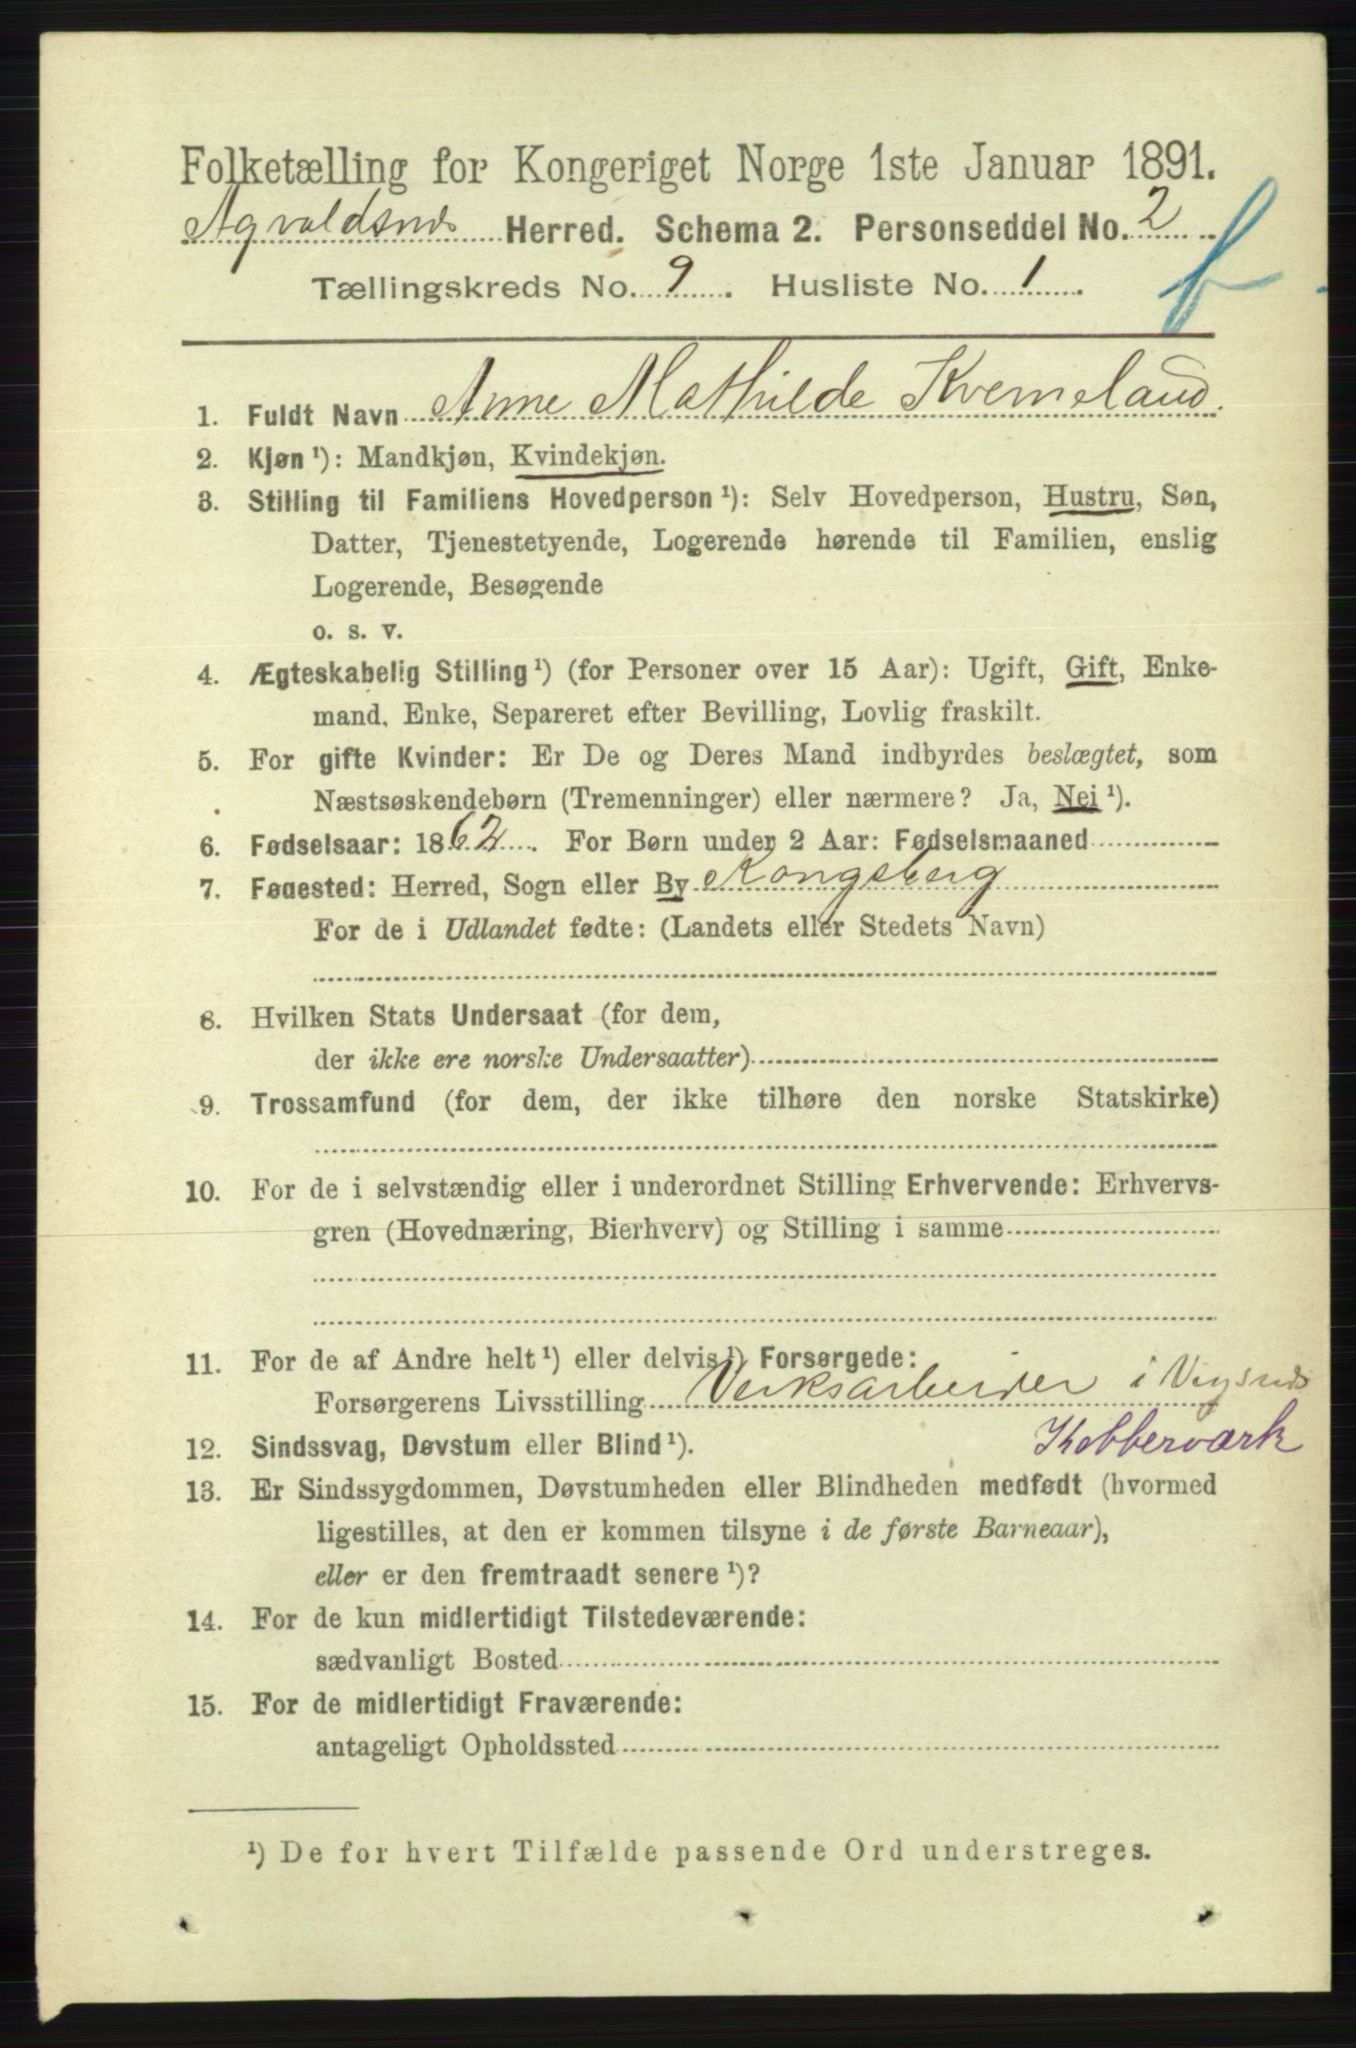 Folketælling for Kongeriget Norge 1ste Januar 1891.
Agvaldsnæs Herred. Schema 2. Personseddel No. 2
Tællingskreds No. 9. Husliste No. 1.
1. Fuldt Navn Anne Mathilde Kverneland.
2. Kjøn ¹): Mandkjøn, Kvindekjøn.
3. Stilling til Familiens Hovedperson ¹): Selv Hovedperson, Hustru, Søn,
Datter, Tjenestetyende, Logerende hørende til Familien, enslig
Logerende, Besøgende
o. s. v.
4. Ægteskabelig Stilling ¹) (for Personer over 15 Aar): Ugift, Gift, Enke-
mand, Enke, Separeret efter Bevilling, Lovlig fraskilt.
5. For gifte Kvinder: Er De og Deres Mand indbyrdes beslægtet, som
Næstsøskendebørn (Tremenninger) eller nærmere? Ja, Nei ¹).
6. Fødselsaar: 1862. For Børn under 2 Aar: Fødselsmaaned
7. Fødested: Herred, Sogn eller By Kongsberg
For de i Udlandet fødte: (Landets eller Stedets Navn)
8. Hvilken Stats Undersaat (for dem,
der ikke ere norske Undersaatter)
9. Trossamfund (for dem, der ikke tilhøre den norske Statskirke)
10. For de i selvstændig eller i underordnet Stilling Erhvervende: Erhvervs-
gren (Hovednæring, Bierhverv) og Stilling i samme
11. For de af Andre helt ¹) eller delvis ¹) Forsørgede:
Forsørgerens Livsstilling Verksarbeider i Vigsnæs
Kobberværk
12. Sindssvag, Døvstum eller Blind ¹).
13. Er Sindssygdommen, Døvstumheden eller Blindheden medfødt (hvormed
ligestilles, at den er kommen tilsyne i de første Barneaar),
eller er den fremtraadt senere ¹)?
14. For de kun midlertidigt Tilstedeværende:
sædvanligt Bosted
15. For de midlertidigt Fraværende:
antageligt Opholdssted
¹) De for hvert Tilfælde passende Ord understreges.